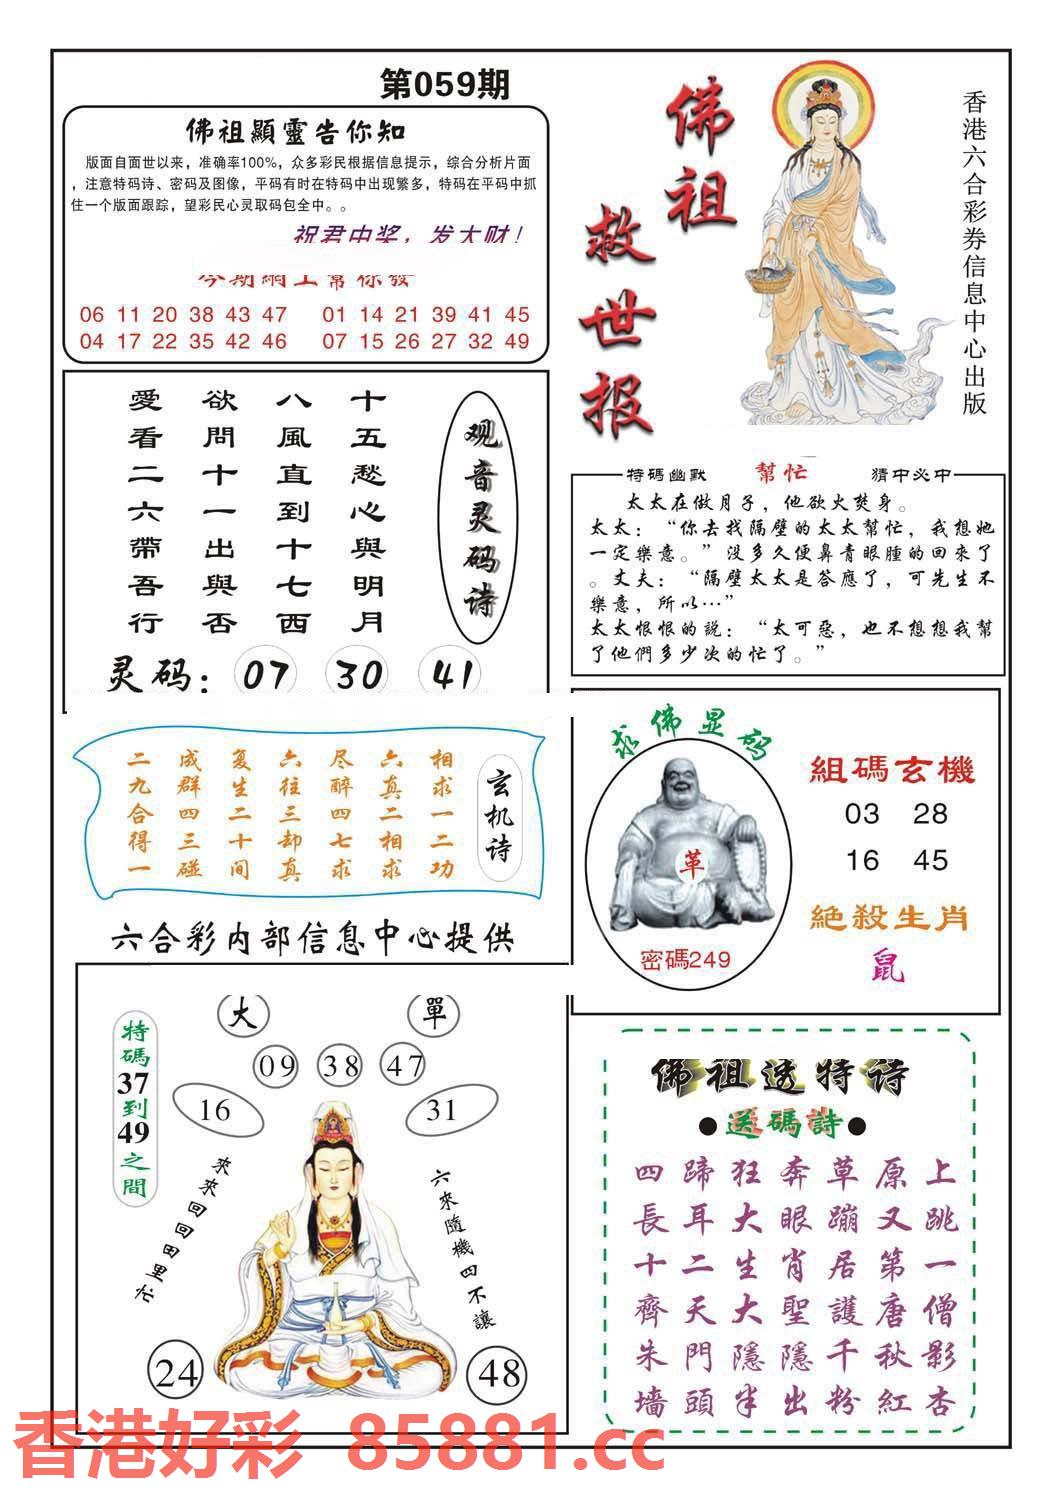 第059期
佛祖顯靈告你知
版面自面世以来，准确率100%，众多彩民根据信息提示，综合分析片面
，注意特码诗、密码及图像，平码有时在特码中出现繁多，特码在平码中抓
住一个版面跟踪，望彩民心灵取码包全中。。
祝君中奖，发大财！
今期網上幫你發
06 11 20 38 43 47 01 14 21 39 41 45
04 17 22 35 42 46 07 15 26 27 32 49
佛祖
救世报
香港六合彩券信息中心出版
观音灵码诗
十五愁心與明月
八風直到十七西
欲問十一出與否
愛看二六帶吾行
灵码：07 30 41
特碼幽默 幫忙 猜中必中
太太在做月子，他欲火焚身。
太太：“你去找隔壁的太太幫忙，我想她
一定樂意。”没多久便鼻青眼腫的回來了
。丈夫：“隔壁太太是答應了，可先生不
樂意，所以…”
太太恨恨的説：“太可惡，也不想想我幫
了他們多少次的忙了。”
玄机诗
相求一二功
六真二相求
尽醉四七求
六往三却真
复生二十间
成群四三碰
二九合得一
求佛显码
革
密碼249
組碼玄機
03 28
16 45
絶殺生肖
鼠
六合彩内部信息中心提供
大 單
09 38 47
16 31
特碼37到49之間
來來回回田里忙
六來隨機四不讓
24 48
佛祖透特诗
●送碼詩●
四蹄狂奔草原上
長耳大眼蹦又跳
十二生肖居第一
齊天大聖護唐僧
朱門隱隱千秋影
墻頭半出粉紅杏
香港好彩 85881.cc